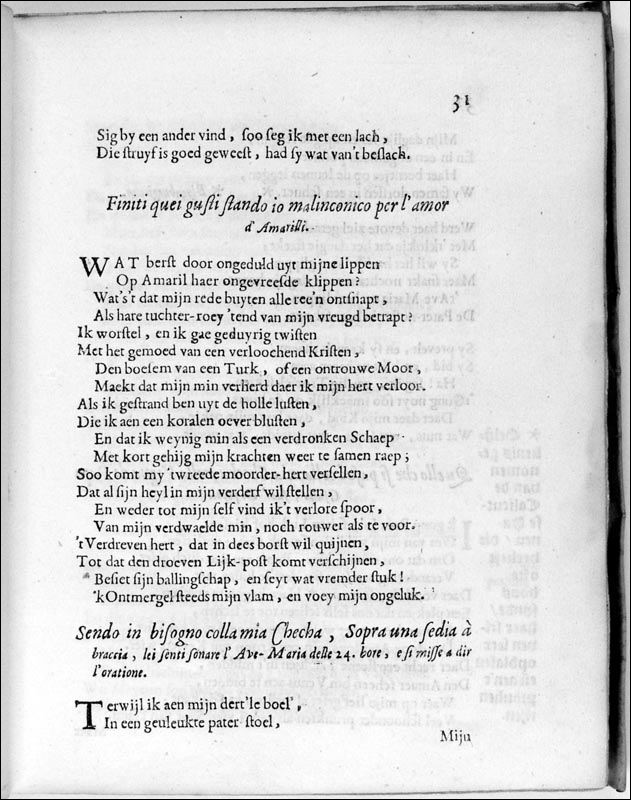 31
Sig by een ander vind, soo seg ik met een lach,
Die struyf is goed geweest, had sy wat van't beslach.
Finiti quei gusti stando io malinconico per l'amor
d'Amarilli.
WAT berst door ongeduld uyt mijne lippen
Op Amaril haer ongevreesde klippen?
Wat's't dat mijn rede buyten alle ree'n ontsnapt,
Als hare tuchter-roey 'tend van mijn vreugd betrapt?
Ik worstel, en ik gae geduyrig twisten
Met het gemoed van een verloochend Kristen,
Den boesem van een Turk, of een ontrouwe Moor,
Maekt dat mijn min verherd daer ik mijn hert verloor.
Als ik gestrand ben uyt de holle lusten,
Die ik aen een koralen oever blusten,
En dat ik weynig min als een verdronken Schaep
Met kort gehijg mijn krachten weer te samen raep;
Soo komt my 'tweede moorder-hert versellen,
Dat al sijn heyl in mijn verderf wil stellen,
En weder tot mijn self vind ik't verlore spoor,
Van mijn verdwaelde min, noch rouwer als te voor.
't Verdreven hert, dat in dees borst wil quijnen,
Tot dat den droeven Lijk-post komt verschijnen,
Besiet sijn ballingschap, en seyt wat vremder stuk!
'k Ontmergel steeds mijn vlam, en voey mijn ongeluk.
Sendo in bisogno colla mia Checha, Sopra una sedia à
braccia, lei senti sonare l'Ave-Maria delle 24. hore, e si misse a dir
l'oratione.
Terwijl ik aen mijn dert'le boel',
In een geuleukte pater stoel,
Mijn